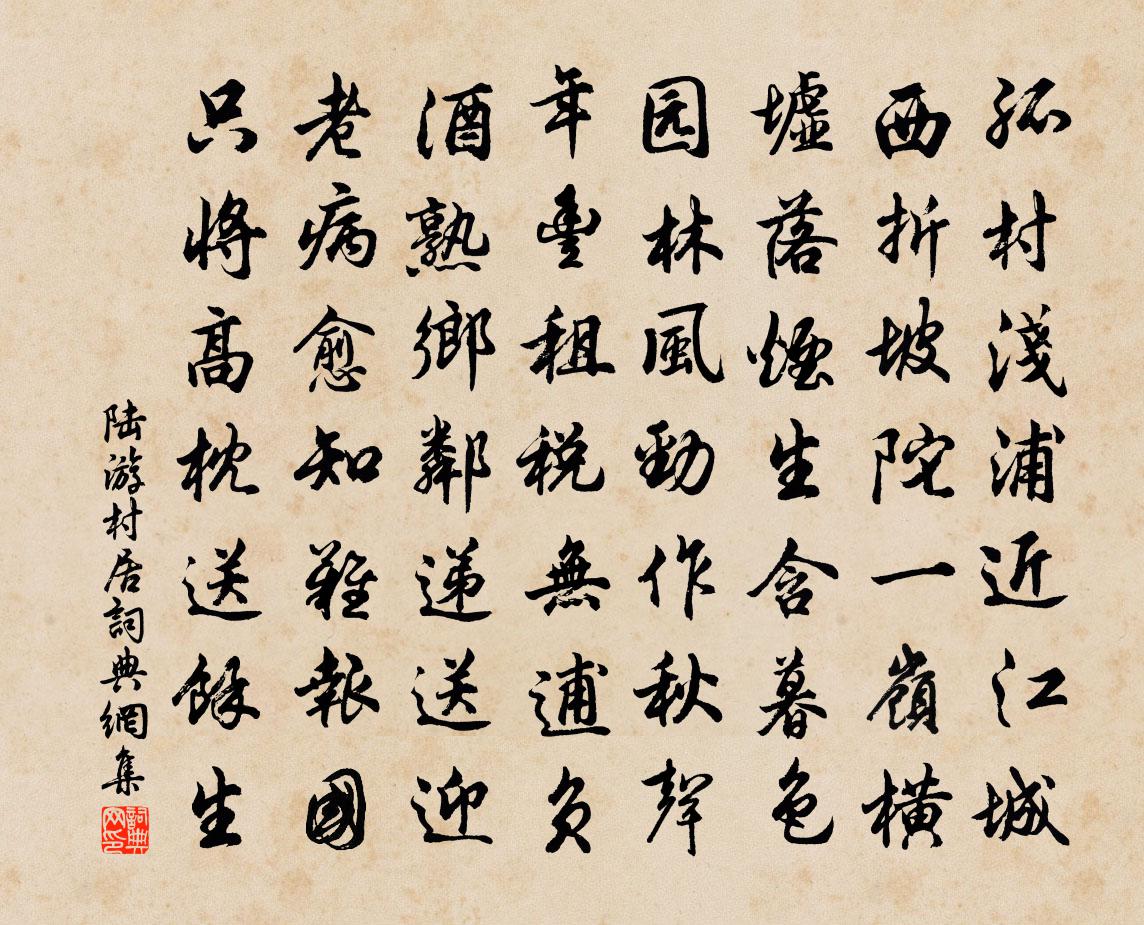 孤村淺浦近江城
西折坡陀一嶺橫
墟落煙生含暮色
园林風勁作秋聲
年豊租税無逋負
酒熟鄉鄰递送迎
老病愈知難報國
只將高枕送餘生
陆游村居詞典網集
詞典網印